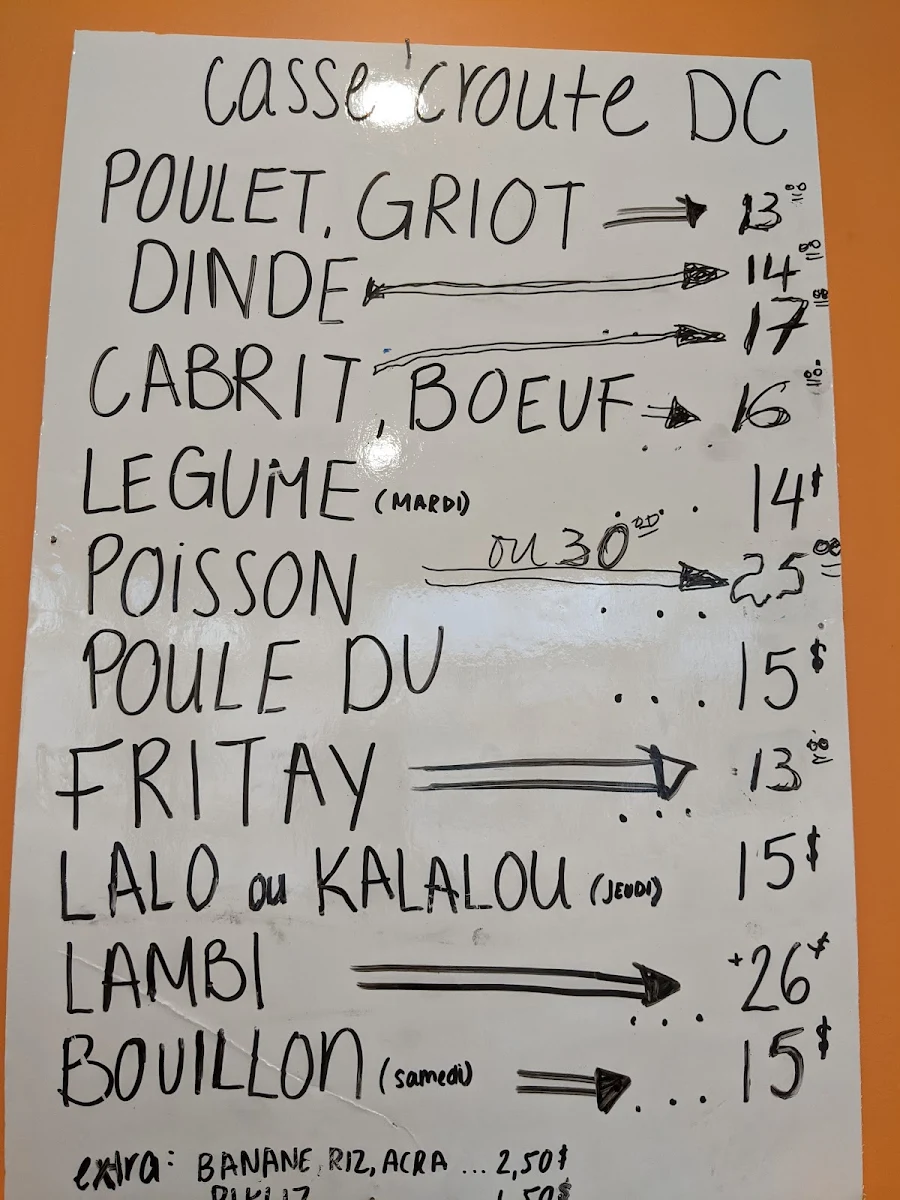 Casse croute DC
POULET, GRIOT 13.00
DINDE 14.00
17.00
CABRIT, BOEUF 16.00
LEGUME (MARDI) ... 14$
ou 30.00
POISSON 25.00
POULE DU ... 15$
FRITAY 13.00
LALO ou KALALOU (JEUDI) 15$
LAMBI +26$
BOUILLON (samedi) ... 15$
extra: BANANE, RIZ, ACRA ... 2,50$
PIKLIZ 1,50$